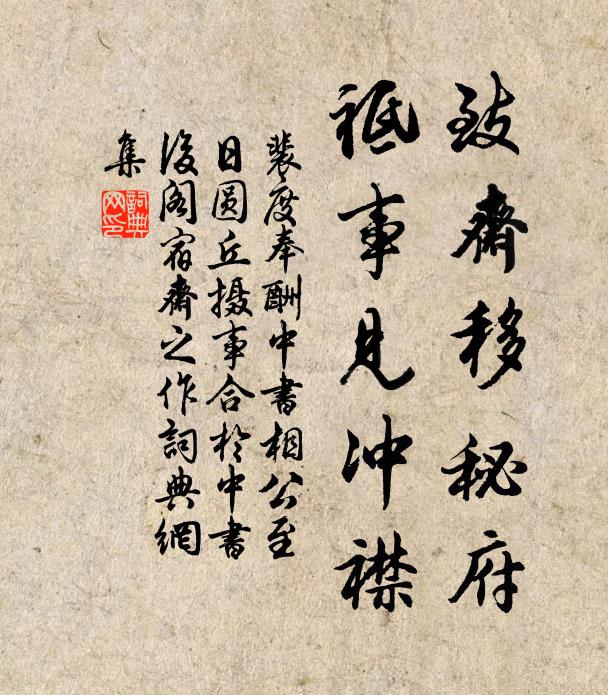 致齋移秘府
祗事見沖襟
裴度奉酬中書相公至
日圆丘摄事合於中書
後阁宿齋之作詞典網
集
詞典
网印